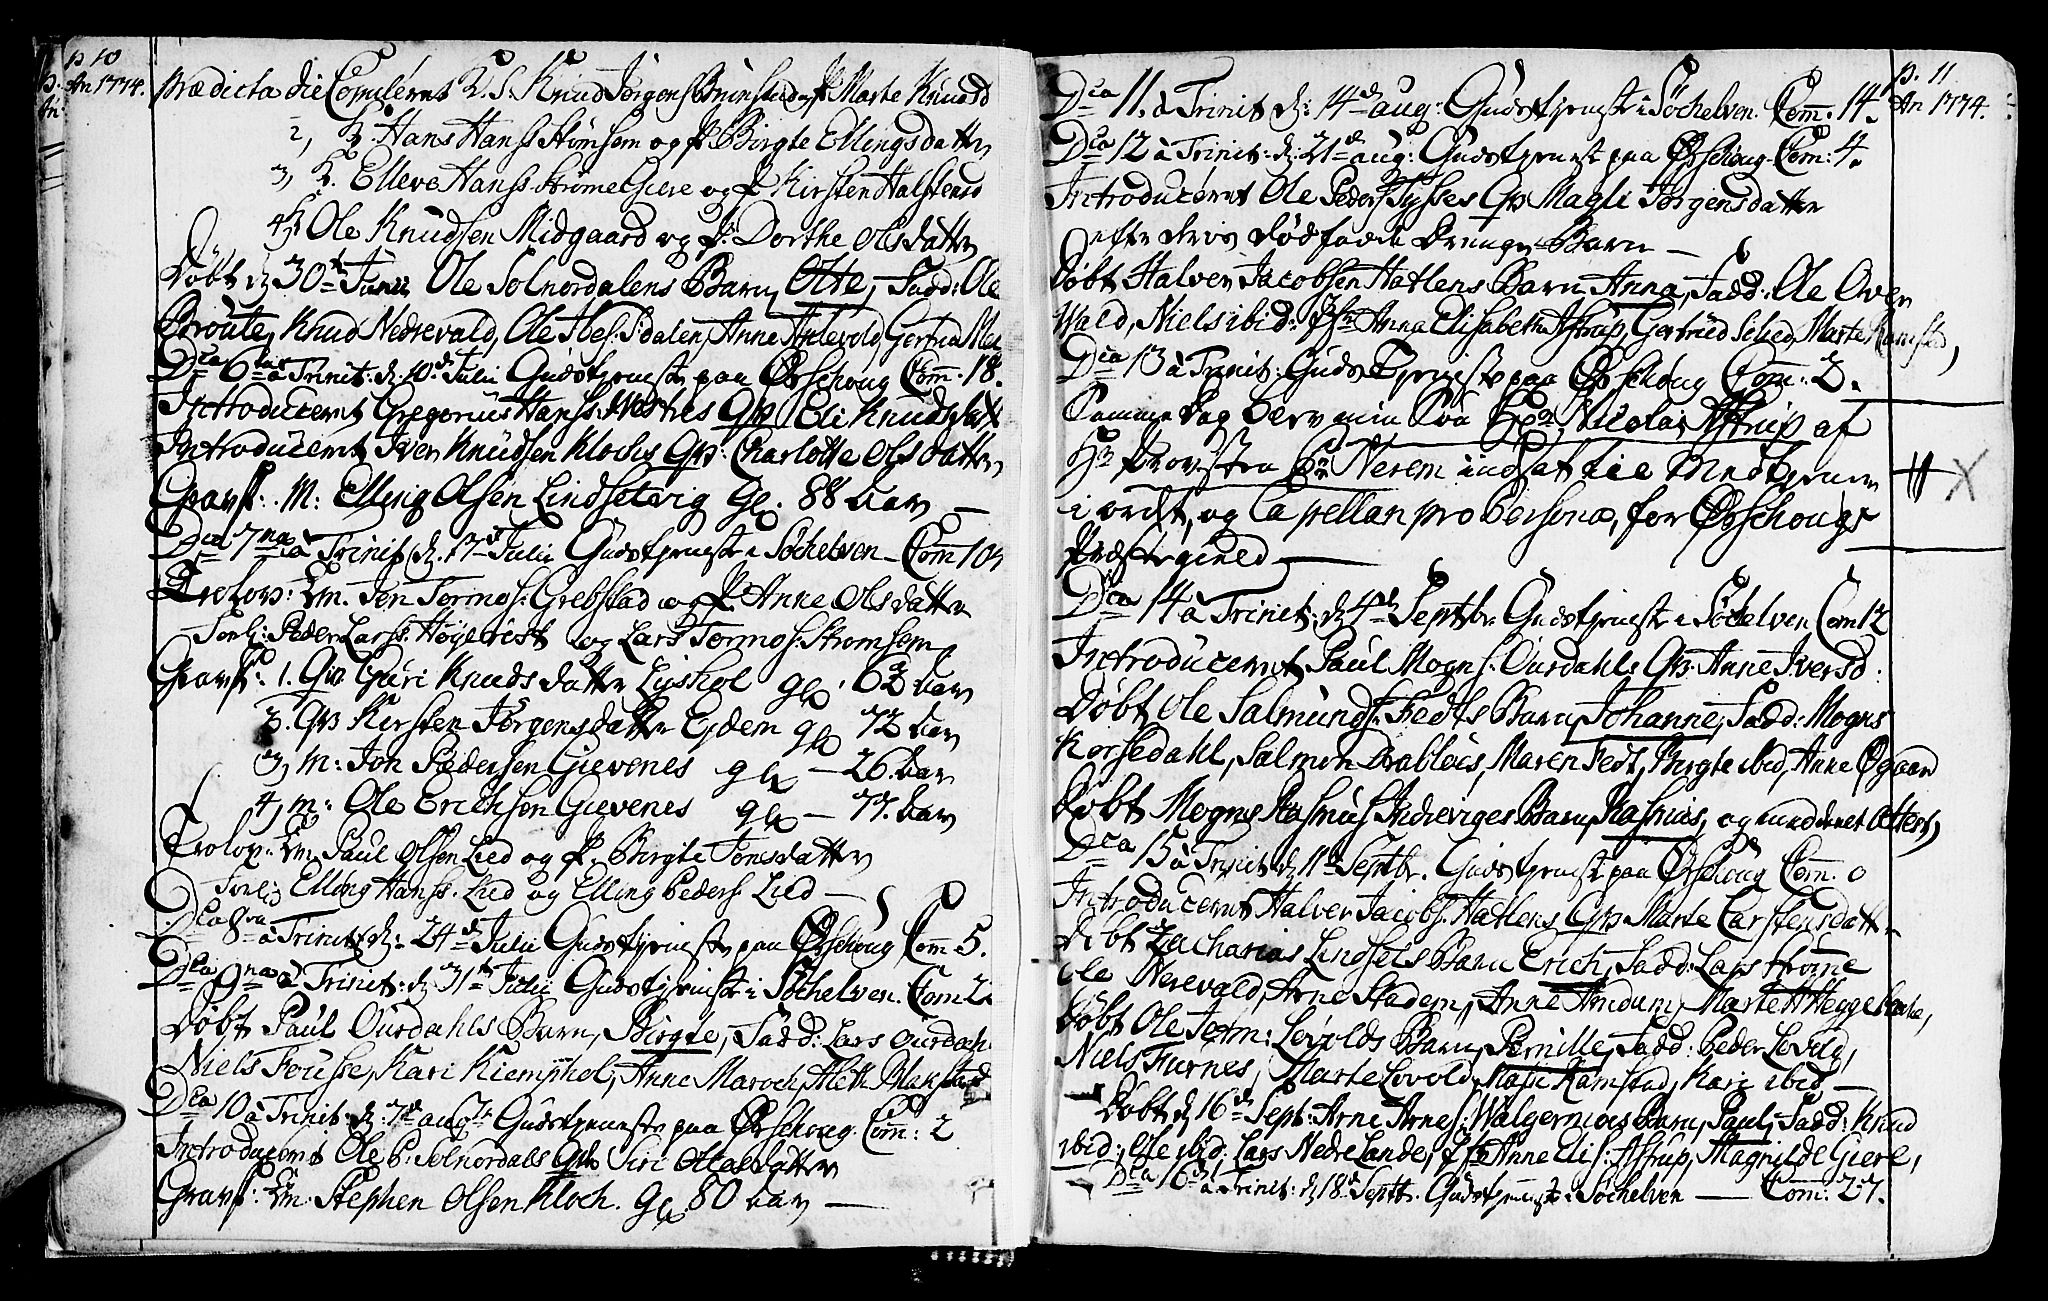 p 10
An 1774.
Prædicta die Copulerut K. S. Knud Jørgens Brunstad og P. Marte Knusd
2, K. Hans Hanss Strømsem og P. Birgte Ellingsdatter
3, K. Elleve Hanss. Strømegiere og P. Kirsten Halstensd
4, K. Ole Knudsen Midgaard og P: Dorthe Olsdatter
Døbt d: 30te Junii Ole Solnordalens Barn, Otte, Fadd: Ole
Broute, Knud Nedrevald, Ole Ibes: Sdalen, Anne Apelvold, Gertrud
Dca 6ta à Trinit: d. 10de Julii Gudstjeneste paa Ørschoug Com. 18.
Introduceret Gregorius Hanss. Westres Qv. Eli Knudsdatt
Introduceret Iver Knudsen Klochs Qv: Charlotte Olsdatter
Gravf: M: Elling Olsen Lindsetvig gl. 88 aar
Dca 7na à Trinit. d. 17de Julii Gudstjeneste i Søchelven Com 10
Trolov: Em. Jon Tormos: Grebstad og P. Anne Olsdatter
Forl: Peder Larss. Høgebrest og Lars Tormos: Stromsem
Gravf: 1. Qv Guri Knudsdatter Lyshol gl: 62 aar
2. Qv Kirsten Jørgensdatter Ejdem gl 72 aar
3, M: Jon Pedersen Gievenes gl – 26 aar
4, M: Ole Erichsen Gievenes gl – 77. aar
Trolov: Em Paul Olsen Lied og P. Birgte Jonsdatter
Forl: Elling Hanss. Lied og Elling Peders Lied
Dca 8va à Trinit: d: 24de Julii Gudstjeneste paa Ørschoug Com 5.
Dca 9na à Trinit: d 31te Julii Gudstjeneste i Søchelven. Com 2
Døbt Paul Ourdahls Barn, Birgte, Fadd: Lars Ourdahl
Niels Fousse, Kari Kiemphol, Anne Maroch, Aleth Blakstad
Dca 10 à Trinit: d. 7de aug: Gudstjeneste paa Ørschoug Com: 2
Introduceret Ole P: Solnordals Qv Siri Ottesdatter
Gravf: Em: Stephen Olsen Kloch. gl 80 aar
p. 11
An 1774.
Dca 11. à Trinit d: 14de aug: Gudstjeneste i Søchelven. Com. 14.
Dca 12 à Trinit: d: 21de aug: Gudstjenest paa Ørschoug Com: 4.
Introduceret Ole Peders Tysses Qv Magli Jørgensdatter
efter deris dødfødde Drenge-Barn
Døbt Halver Jacobsen Hatlens Barn Anna, Fadd: Ole Over
Wald, Niels ibid: Jfr Anna Elisabeth Astrup, Gertrud Solied, Marte Ramstad,
Dca 13 à Trinit: Guds Tjeneste paa Ørschoug Com: 2.
Samme Dag blev min Søn Hr Nicolai Astrup af
Hr Provsten Nerem indsat til Medtjener
i ordet, og Capellan pro Persona, for Ørschougs
Præstegield
Dca 14 à Trinit: d 4de Septbr Gudstjeneste i Søchelven Com 12
Introduceret Paul Mogns: Ourdahls Qv: Anne Iversd:
Døbt Ole Salmunds: Fedts Barn, Johanne, Fadd: Mogns
Korsedahl, Salmon Drabløes, Maren Fedt, Birgte ibid, Anne Øgaard
Døbt Mogns Rasmus: Indreviges Barn, Rasmus, og
Dca 15 à Trinit d 11te Septbr. Gudstjeneste paa Ørschoug Com. 0
Introduceret Halver Jacobs: Hatlens Qv Marte Carstensdatt
Døbt Zacharias Lindsets Barn Erich, Fadd: Lars Strøme
Ole Nerevald, Arne Stadem, Anne Amdum, Marte Heggebakke,
Døbt Ole Torm: Løvolds Barn, Pernille, Fadd: Peder Løvold,
Niels Furnes, Marte Løvold, Masi Ramstad, Kari ibid
Døbt d 16de Sept: Arne Arnes: Walgermoes Barn, Paul, Fadd: Knud
ibid:, Ole ibid: Lars Nedre Lande, Jfr Anne Elis: Astrup, Magnilde Giere,
Dca 16 à Trinit: d 18de Septbr. Gudstjeneste i Søchelven — Com: 27.